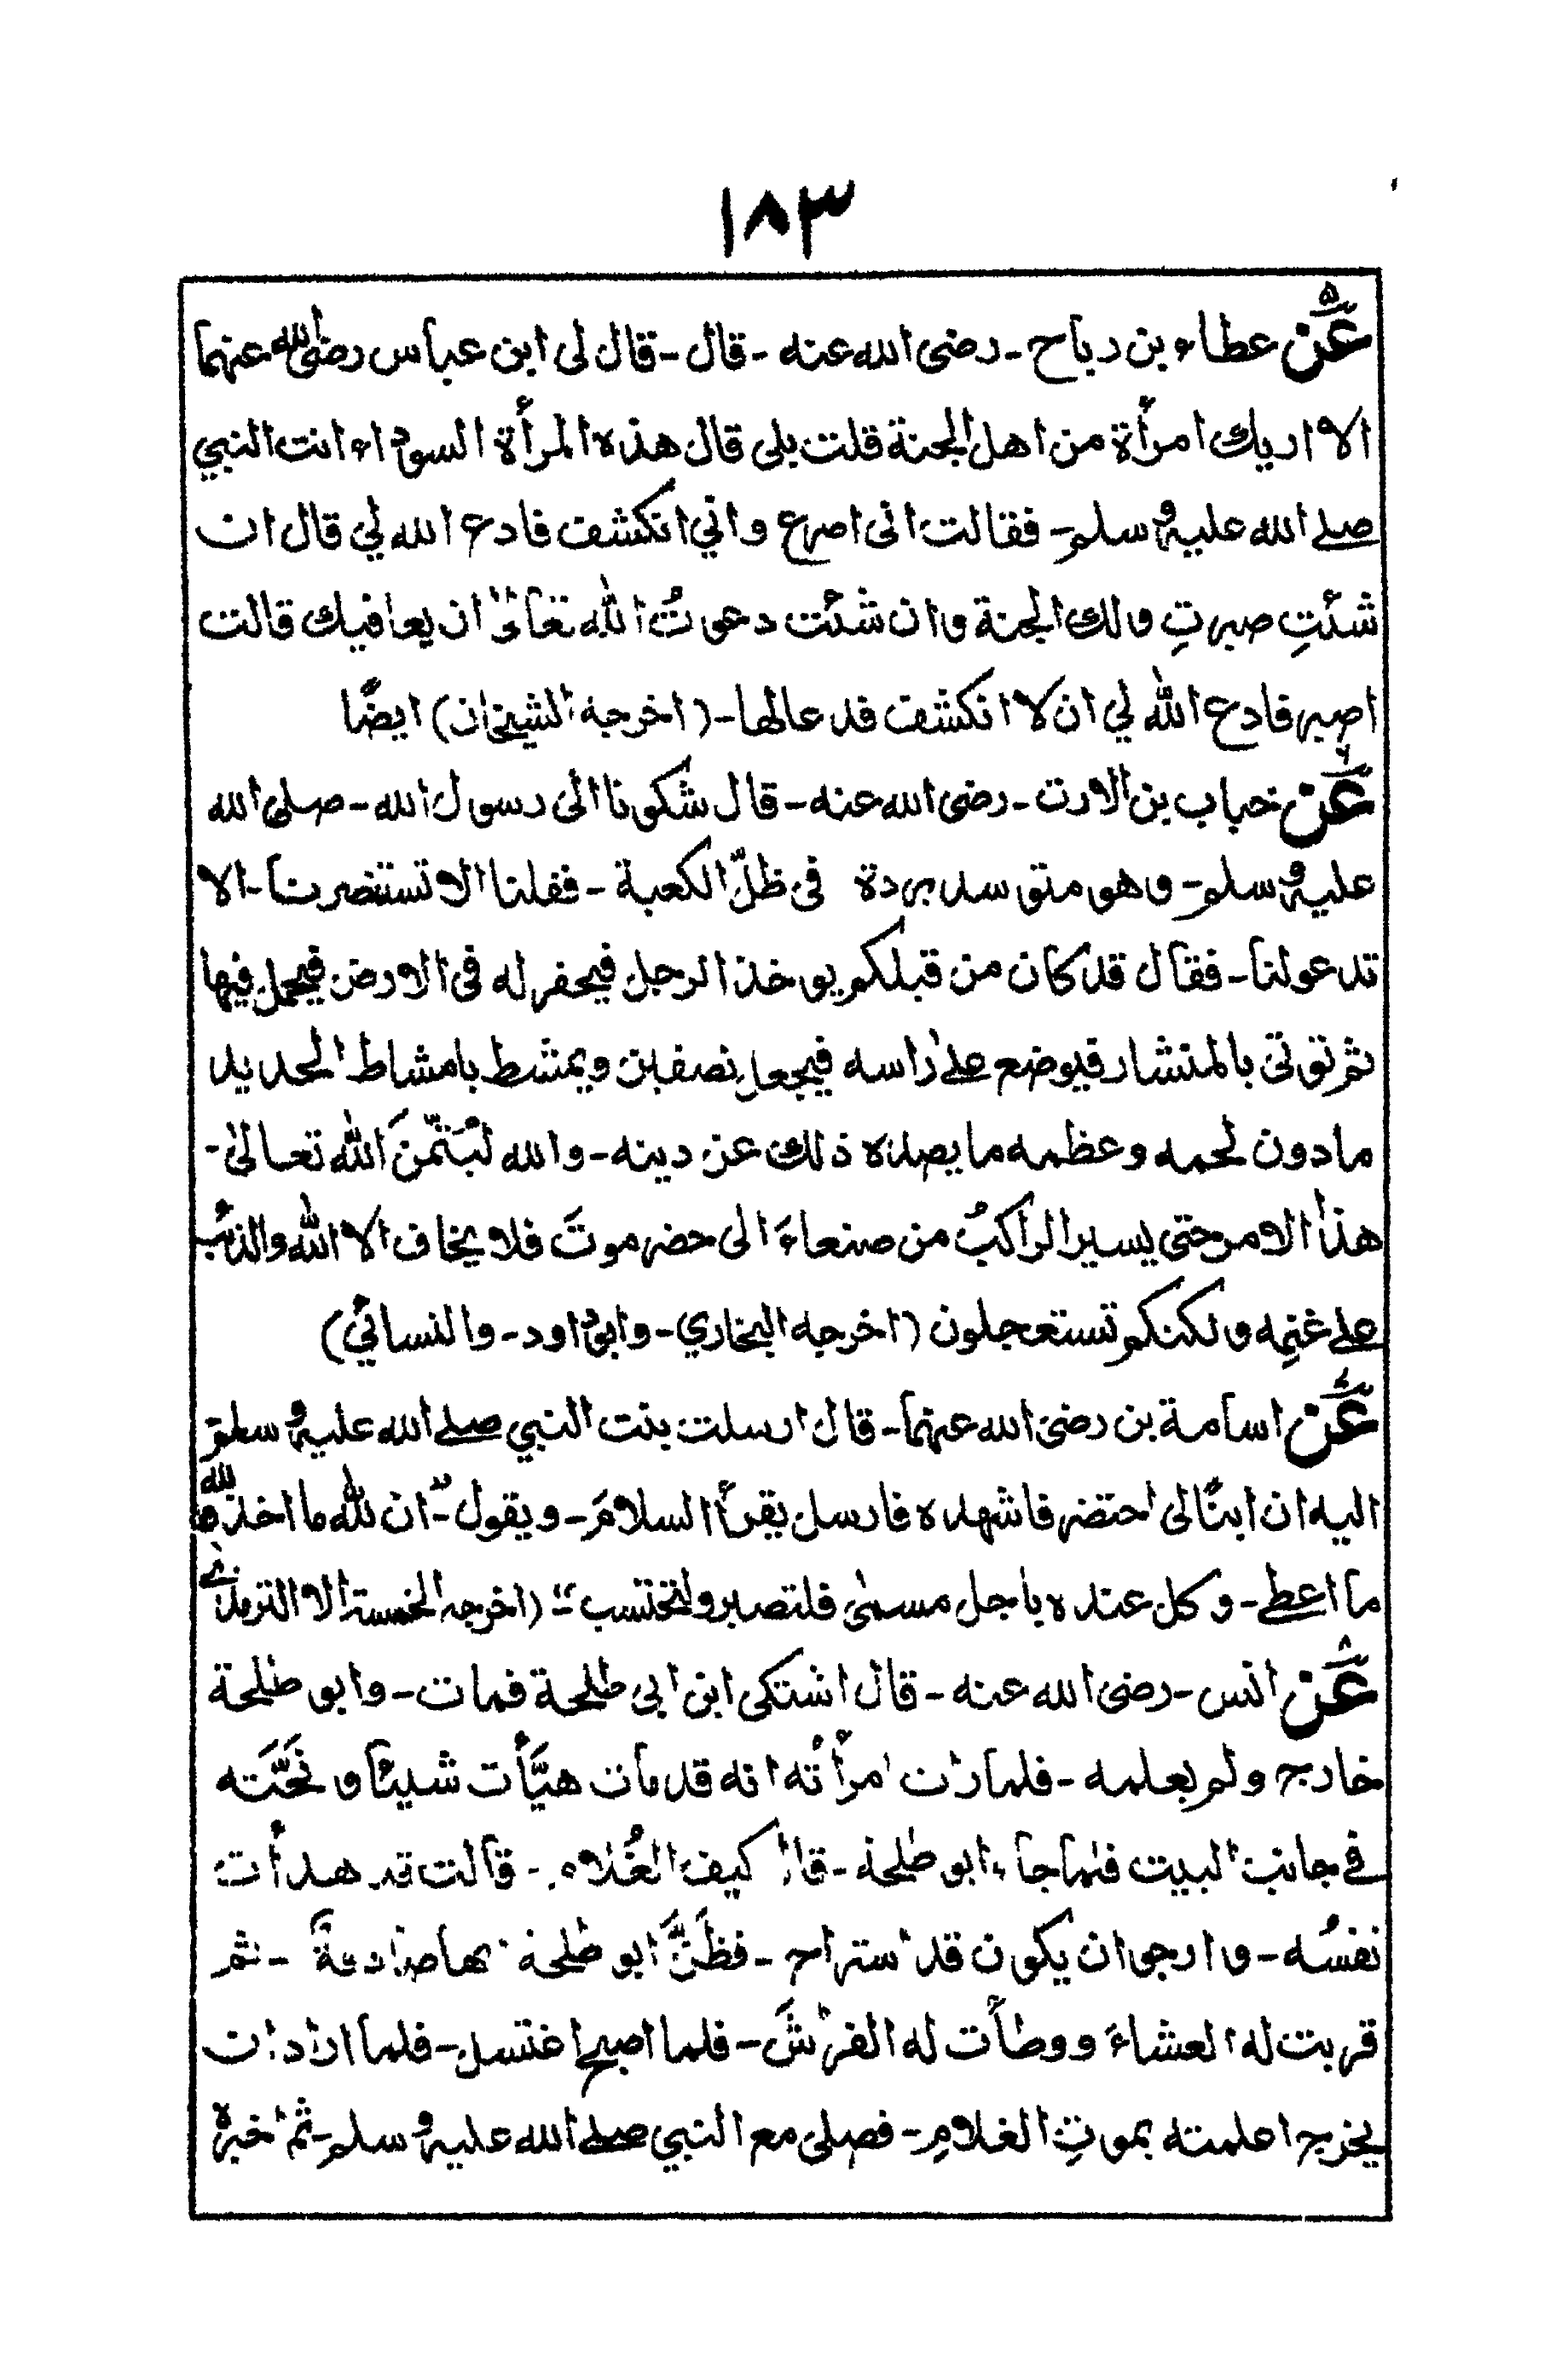 ١٨٣
٥
عَنْ عطاء بن رباح - رضى الله عنه - قال - قال لى ابن عباس رضى الله عنهما
الا اريك امرأة من اهل الجنة قلت بلى قال هذه المرأة السوداء انت النبي
صلے الله عليه وسلم - فقالت انى اصرع واني انكشف فادع الله لي قال ان
شئتِ صبرتِ ولك الجنة وان شئت دعوتُ الله تعالىٰ ان يعافيك قالت
اصبر فادع الله لي ان لا انكشف فدعالها - (اخرجه الشيخان) ايضًا
٦
عَنْ خباب بن الارت - رضى الله عنه - قال شكونا الى رسول الله - صلى الله
عليه وسلم - وهو متوسد بردة فى ظلّ الكعبة - فقلنا الا تستنصرنا - الا
تدعولنا - فقال قد كان من قبلكم يوخذ الرجل فيحفر له فى الارض فيجعل فيها
ثم توتى بالمنشار فيوضع علےٰ راسه فيجعل نصفين ويمشط بامشاط الحديد
مادون لحمه وعظمه ما يصده ذلك عن دينه - والله لَيُتِمَّنَّ الله تعالىٰ -
هذا الامر حتى يسير الراكبُ من صنعاءَ الى حضرموتَ فلا يخاف الا الله والذئب
علے غنمِه ولكنكم تستعجلون (اخرجه البخاري - وابوداود - والنسائي)
٧
عَنْ اسامة بن رضى الله عنهما - قال ارسلت بنت النبي صلے الله عليه وسلم
اليه ان ابنًا لى احتضر فاشهده فارسل يقرأ السلامَ - ويقول - "ان لله ما اخذ ولله
ما اعطے - وكل عنده باجل مسمىٰ فلتصبر ولتحتسب" - (اخرجه الخمسة الا الترمذي
٨
عَنْ انس - رضى الله عنه - قال اشتكى ابن ابى طلحة فمات - وابو طلحة
خارج ولم يعلمه - فلما رات امرأته انه قد مات هيَّأت شيئا ونَحَّتَه
في جانب البيت فلما جاء ابو طلحة - قال كيف الغُلام - قالت قد هدأت
نفسُه - وارجو ان يكون قد استراح - فظَنَّ ابو طلحة انها صادقةً - ثم
قربت له العشاءَ ووطأت له الفراشَ - فلما اصبح اغتسل - فلما اراد ان
يخرج اعلمته بموتِ الغلامِ - فصلى مع النبي صلے الله عليه وسلم - ثم اخبره